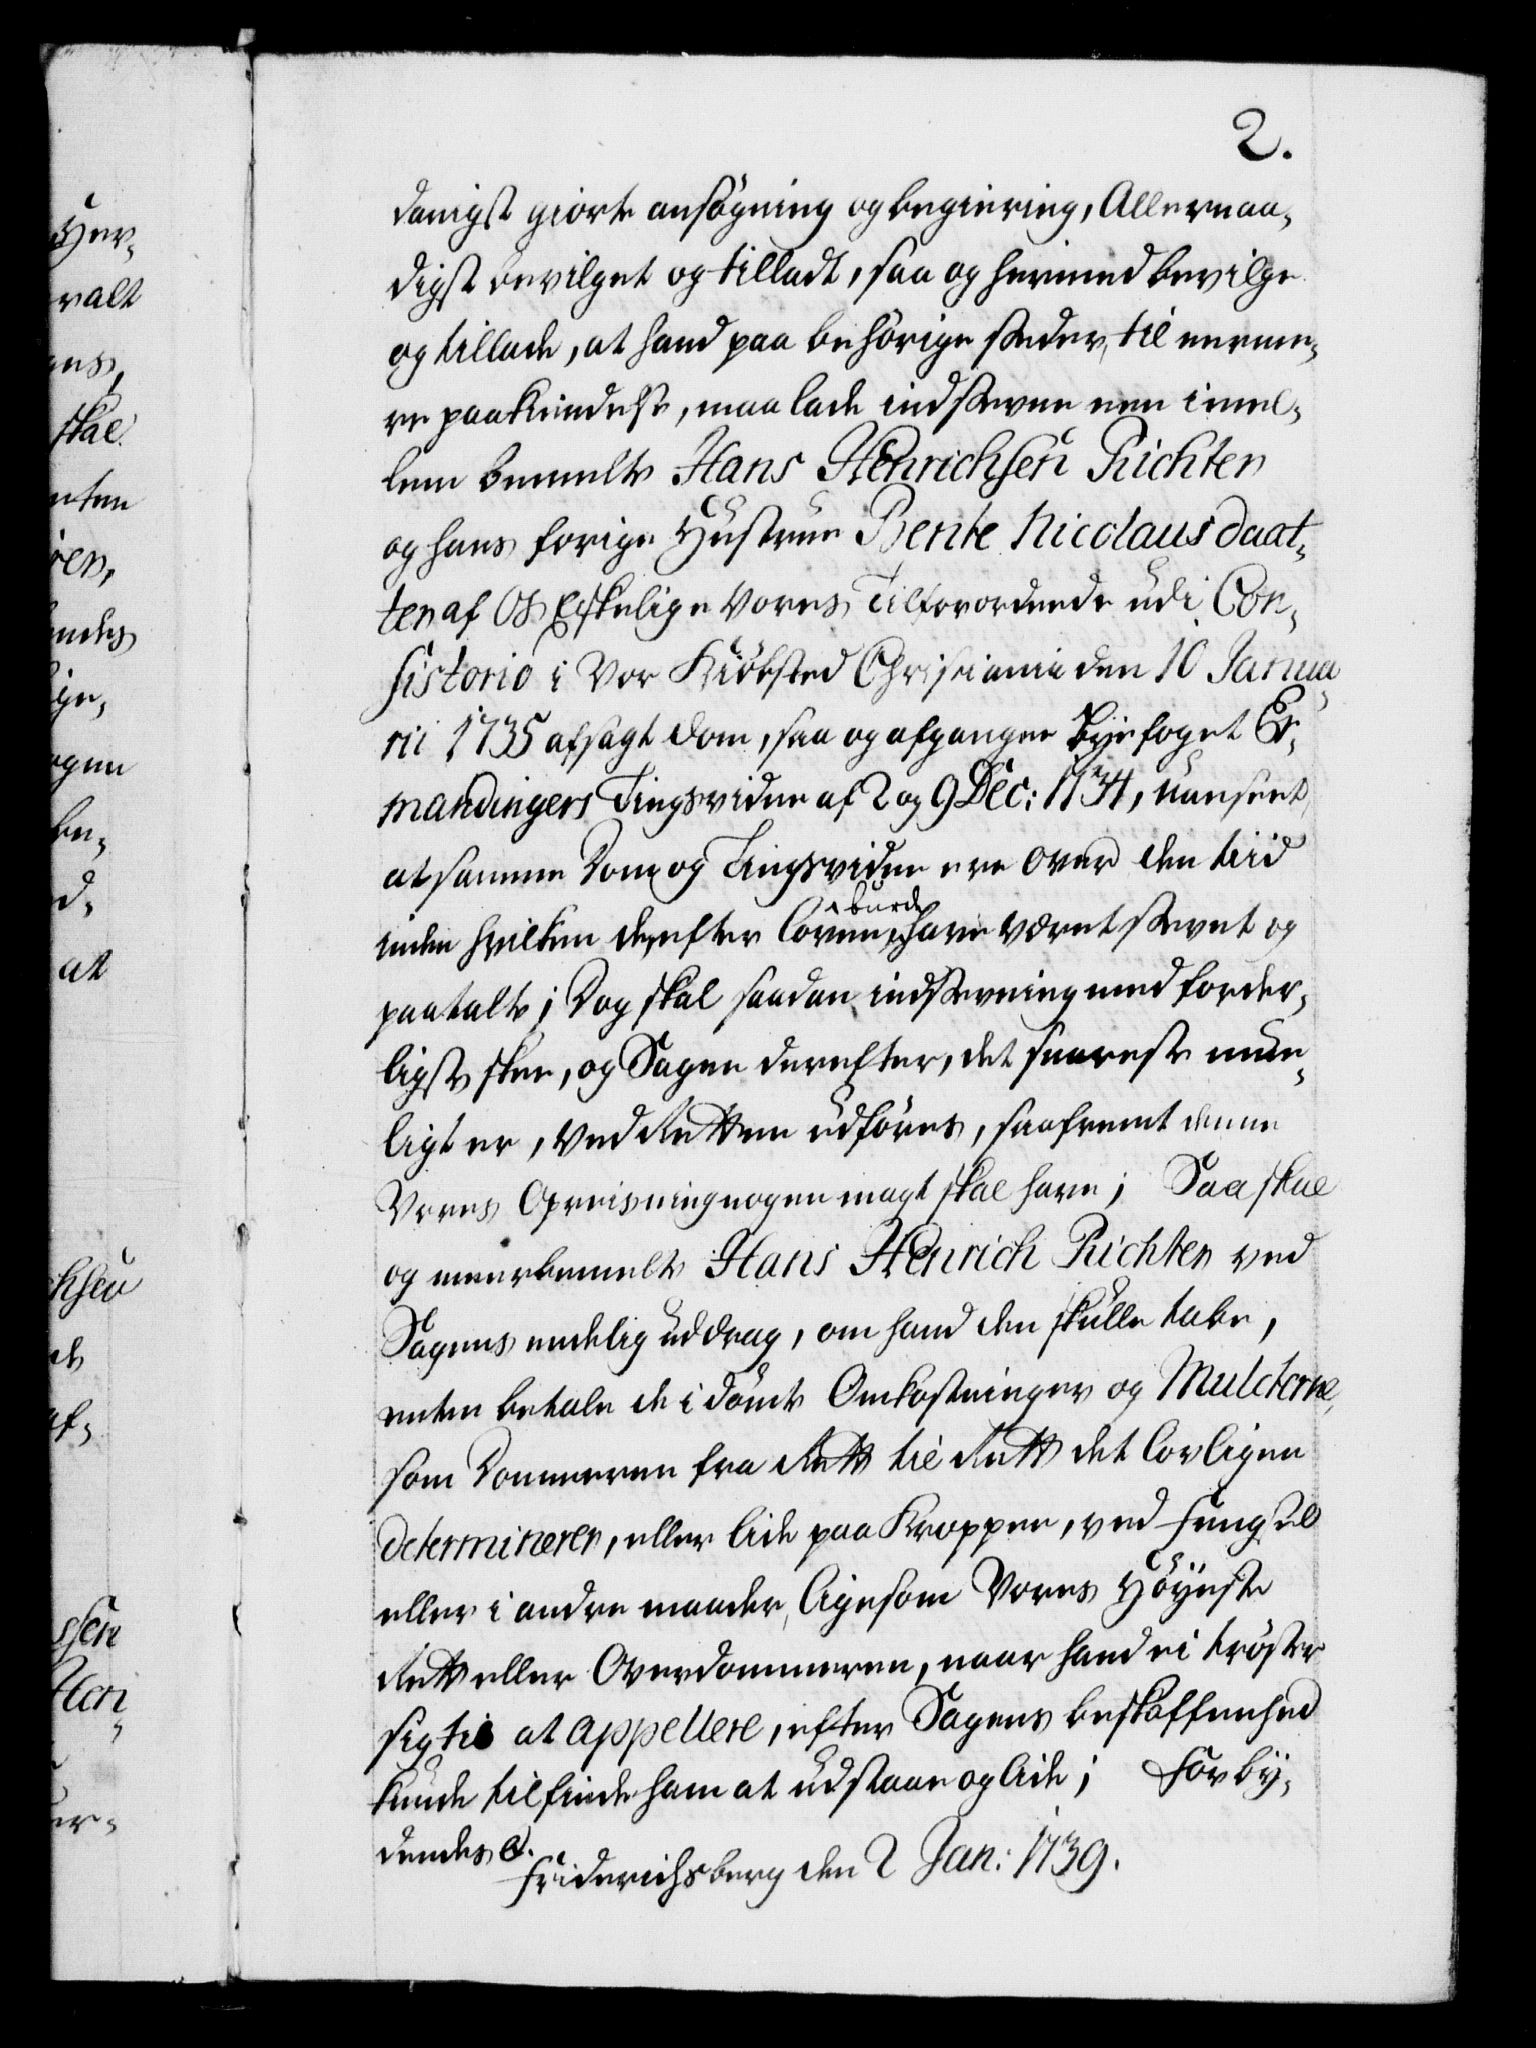 2.
danigst giorte ansøgning og begiering, Allernaa-
digst bevilget og tilladt, saa og hermed bevilge
og tillade, at hand paa behørige stæder, til nerme-
re paakiendelse, maa lade indstevne een imel-
lem bemelte Hans Henrichsen Richter
og hans forige Hustrue Bente Nicolausdaat-
ter af Os Elskelige Vores Tilforordnede udi Con-
sistorio i Vor Kiøbsted Christiania den 10 Janua-
rii 1735 afsagt Dom, saa og afgangen Byefoget Er-
mandingers Tingsvidne af 2 og 9 Dec: 1734, uanseet,
at samme Dom og Tingsvidne ere over den tiid
inden hvilken de efter Loven burde have været stevnet og
paatalt; Dog skal saadan indstevning med forder-
ligst skee, og Sagen derefter, det snareste mue-
ligt er, ved Retten udføres, saafremt denne
Vores Opreisning nogen magt skal have; Saa skal
og meerbemelte Hans Henrich Richter ved
Sagens endelig uddrag, om hand den skulle tabe,
enten betale de i dømte Omkostninger og Mulcterne,
som Dommeren fra Rett til Rett det lovligen
determinerer, eller lide paa Kroppen, ved Fengsel
eller i andre maader, ligesom Vores Høyeste
Rett eller Overdommeren, naar hand ei trøster
sig til at appellere, efter Sagens beskaffenhed
kunde tilfinde ham at udstaae og lide; Forby-
dendes &.
Friderichsberg den 2 Jan: 1739.